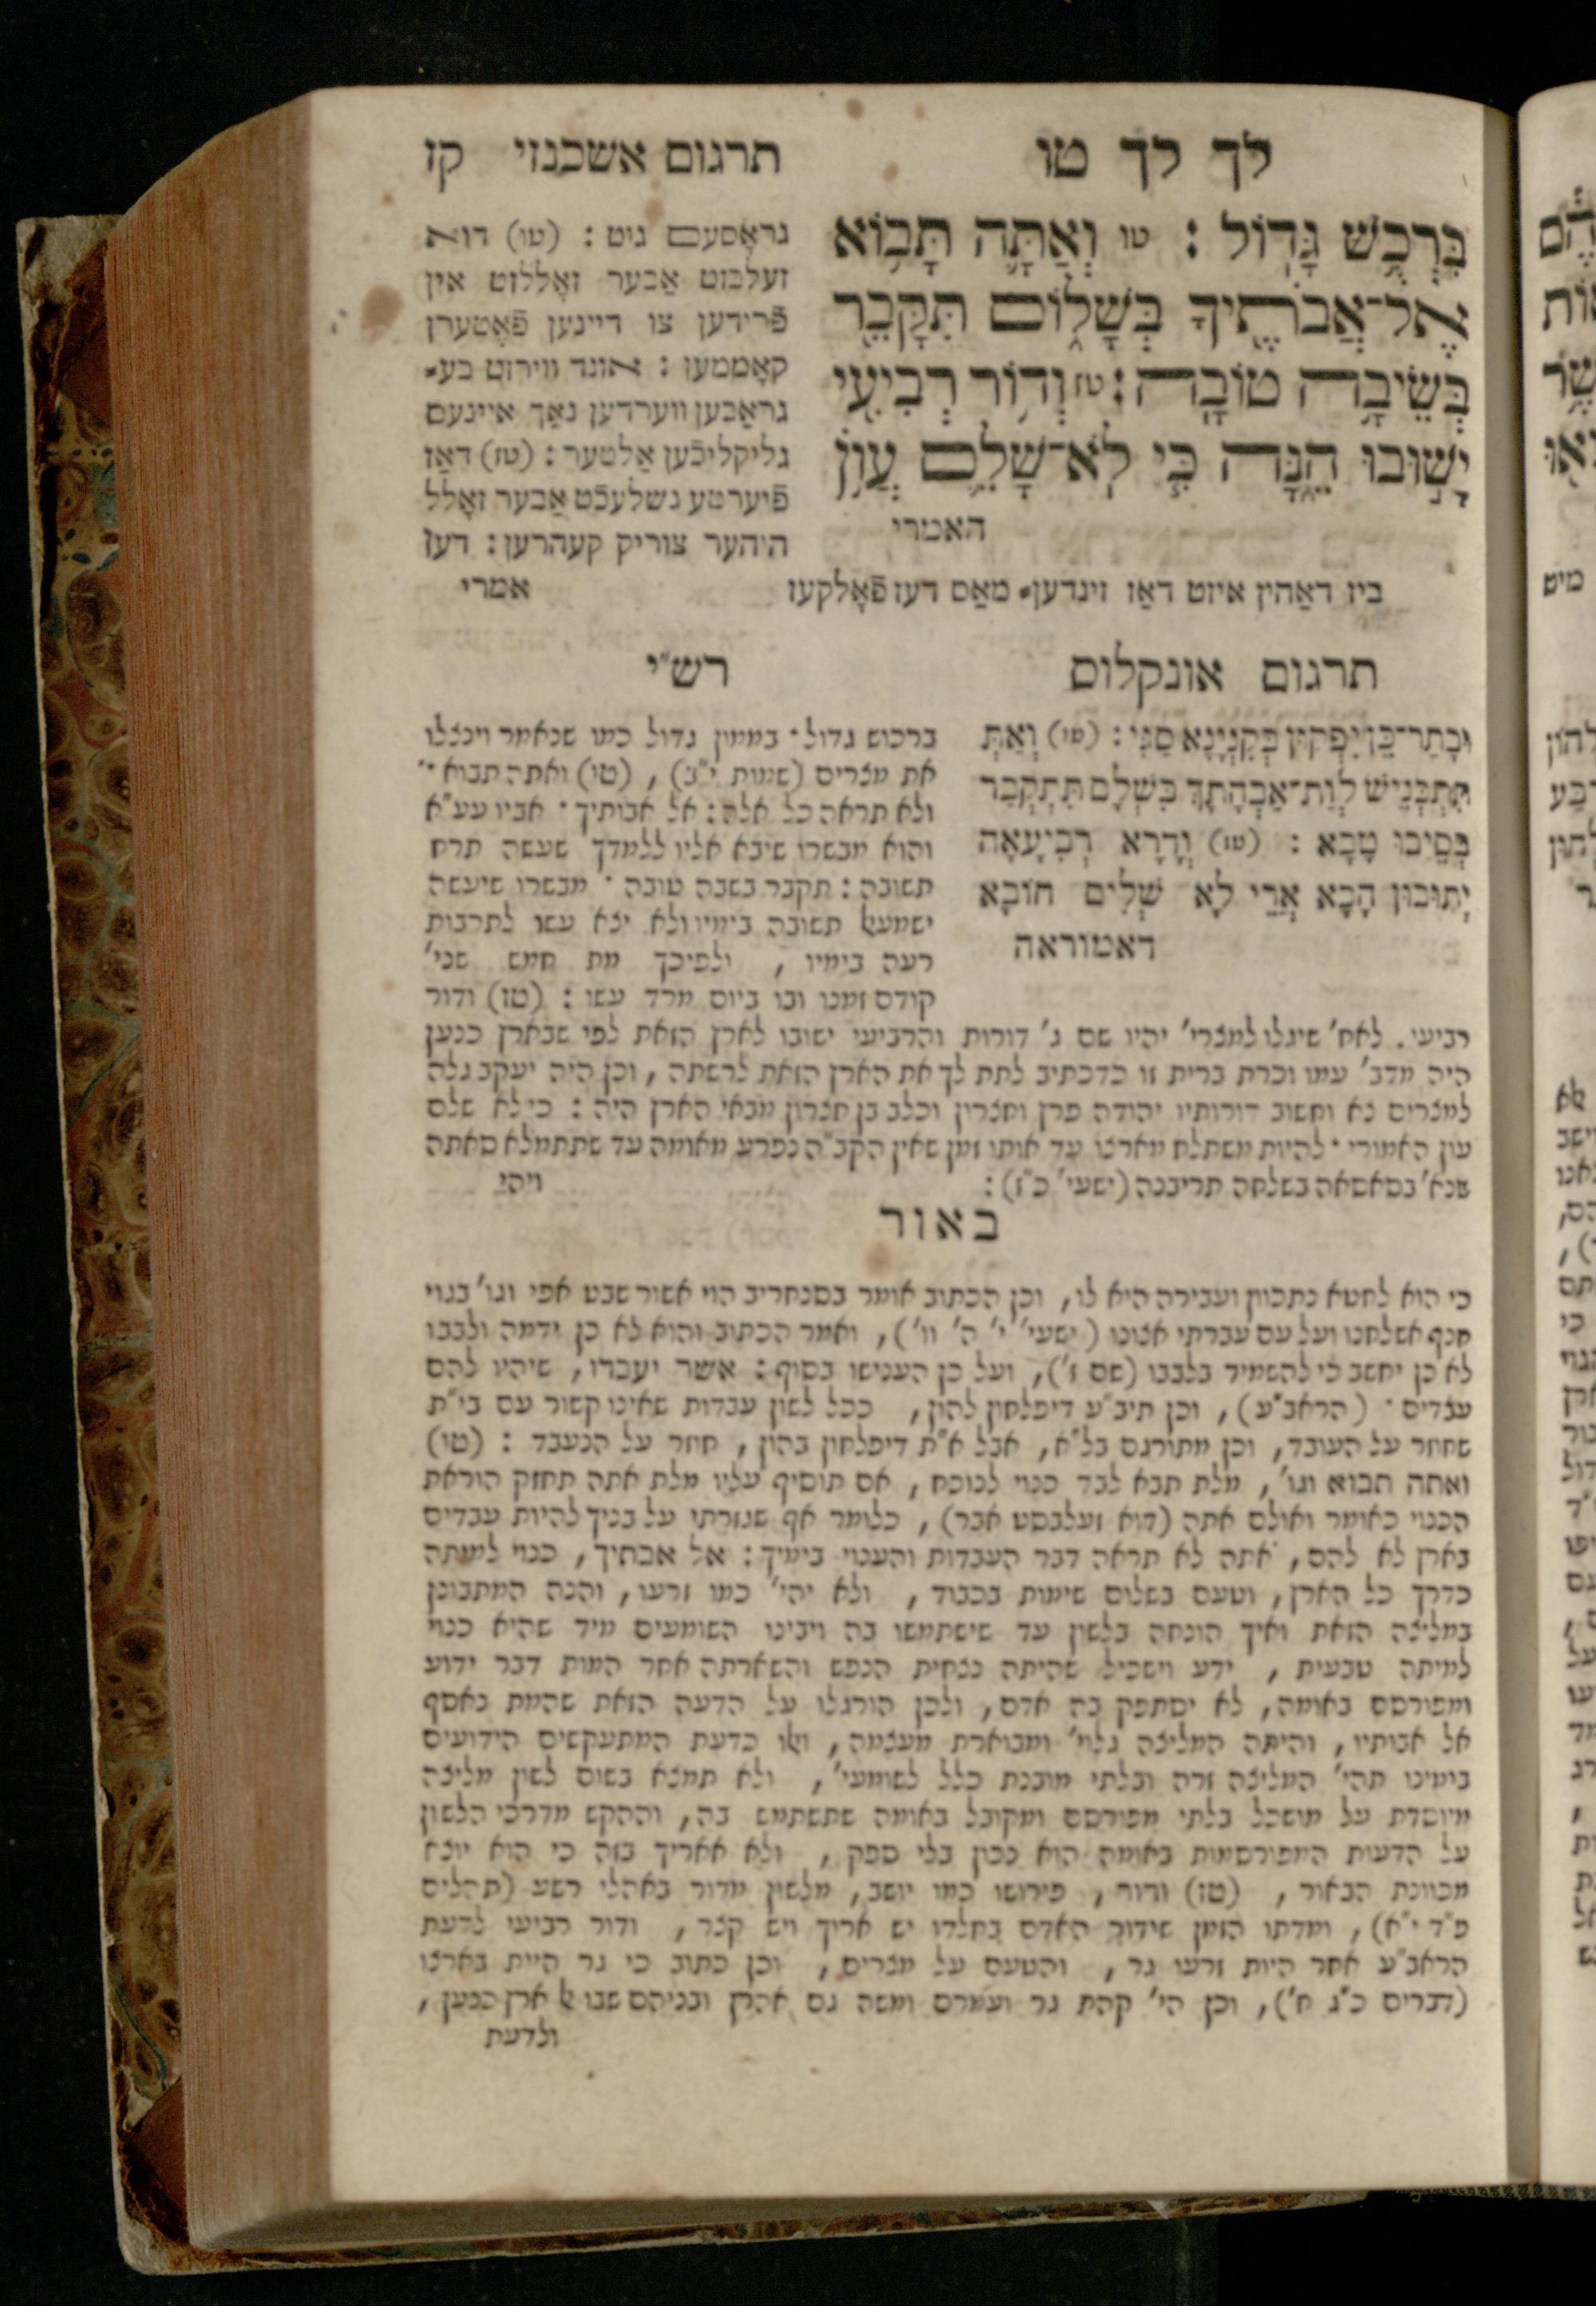 לך לך טו
תרגום אשכנזי קז
בִּרְכֻשׁ גָּדוֹל : טו וְאַתָּה תָּבוֹא
אֶל־אֲבֹתֶיךָ בְּשָׁלוֹם תִּקָּבֵר
בְּשֵׂיבָה טוֹבָה : טז וְדוֹר רְבִיעִי
יָשׁוּבוּ הֵנָּה כִּי לֹא־שָׁלֵם עֲוֹן
האמרי
גראָסעם גוט : (טו) דוא
זעלבזט אַבער זאָללזט אין
פֿרידען צו דיינען פֿאָטערן
קאָממען : אונד ווירזט בע⸗
גראַבען ווערדען נאַך איינעם
גליקליכֿען אַלטער : (טז) דאַז
פֿיערטע געשלעכֿט אַבער זאָלל
היהער צוריק קעהרען : דען
ביז דאַהין איזט דאַז זינדען⸗ מאַס דעז פֿאָלקעז
אמרי
תרגום אונקלוס
וּבָתַר־כֵּן יִפְּקוּן בְּקִנְיָנָא סַגִּי : (טו) וְאַתְּ
תִּתְכְּנֵישׁ לְוַת־אַבְהָתָךְ בִּשְׁלָם תִּתְקְבַר
בְּסֵיבוּ טָבָא : (טז) וְדָרָא רְבִיעָאָה
יְתוּבוּן הָכָא אֲרֵי לָא שְׁלִים חוֹבָא
דאמוראה
רש״י
ברכוש גדול · בממון גדול כמו שנאמר וינצלו
את מצרים (שמות י״ב) , (טו) ואתה תבוא ·
ולא תראה כל אלה : אל אבותיך · אביו עע״א
והוא מבשרו שיבא אליו ללמדך שעשה תרח
תשובה : תקבר בשבה טובה · מבשרו שיעשה
ישמעאל תשובה בימיו ולא יצא עשו לתרבות
רעה בימיו , ולפיכך מת חמש שני׳
קודם זמנו ובו ביום מרד עשו : (טז) ודור
רביעי . לאח׳ שיגלו למצרי׳ יהיו שם ג׳ דורות והרביעי ישובו לארץ הזאת לפי שבארץ כנען
היה מדב׳ עמו וכרת ברית זו כדכתיב לתת לך את הארץ הזאת לרשתה , וכן היה יעקב גלה
למצרים צא וחשוב דורותיו יהודה פרץ וחצרון וכלב בן חצרון מבאי הארץ היה : כי לא שלם
עון האמורי · להיות משתלח מארצו עד אותו זמן שאין הקב״ה נפרע מאומה עד שתתמלא סאתה
שנא׳ בסאסאה בשלחה תריבנה (ישעי׳ כ״ז) :
ויהי
באור
כי הוא לחטא נתכוון ועבירה היא לו , וכן הכתוב אומר בסנחריב הוי אשור שבט אפי וגו׳ בגוי
חנף אשלחנו ועל עם עברתי אצונו (ישעי׳ י׳ ה׳ וו׳) , ואמר הכתוב והוא לא כן ידמה ולבבו
לא כן יחשב כי להשמיד בלבבו (שם ז׳) , ועל כן הענישו בסוף : אשר יעבדו , שיהיו להם
עבדים · (הראב״ע) , וכן תיב״ע דיפלחון להון , ככל לשון עבדות שאינו קשור עם בי״ת
שחוזר על העובד , וכן מתורגם בל״א , אבל א״ת דיפלחון בהון , חוזר על הנעבד : (טו)
ואתה תבוא וגו׳ , מלת תבא לבד כנוי לנוכח , אם תוסיף עליו מלת אתה תחזק הוראת
הכנוי כאומר ואולם אתה (דוא זעלבסט אבר) , כלומר אף שגזרתי על בניך להיות עבדים
בארץ לא להם , אתה לא תראה דבר העבדות והענוי בימיך : אל אבתיך , כנוי למיתה
כדרך כל הארץ , וטעם בשלום שימות בכבוד , ולא יהי׳ כמו זרעו , והנה המתבונן
במליצה הזאת ואיך הונחה בלשון עד שישתמשו בה ויבינו השומעים מיד שהיא כנוי
למיתה טבעית , ידע וישכיל שהיתה נצחית הנפש והשארתה אחר המות דבר ידוע
ומפורסם באומה , לא יסתפק בה אדם , ולכן הורגלו על הדעה הזאת שהמת נאסף
אל אבותיו , והיתה המליצה גלוי׳ ומבוארת מעצמה , ואלו כדעת המתעקשים הידועים
בימינו תהי׳ המליצה זרה ובלתי מובנת כלל לשומעי׳ , ולא תמצא בשום לשון מליצה
מיוסדת על מושכל בלתי מפורסם ומקובל באומה שתשתמש בה , וההקש מדרכי הלשון
על הדעות המפורסמות באומה הוא נכון בלי ספק , ולא אאריך בזה כי הוא יוצא
מכוונת הבאור , (טז) ודור , פירושו כמו יושב , מלשון מדור באהלי רשע (תהלים
פ״ד י״א) , ומדתו הזמן שידור האדם בחלדו יש ארוך ויש קצר , ודור רביעי לדעת
הראב״ע אחר היות זרעו גר , והטעם על מצרים , וכן כתוב כי גר היית בארצו
(דברים כ״ג ח׳) , וכן הי׳ קהת גר ועמרם ומשה גם אהרן ובניהם שבו אל ארץ כנען ,
ולדעת